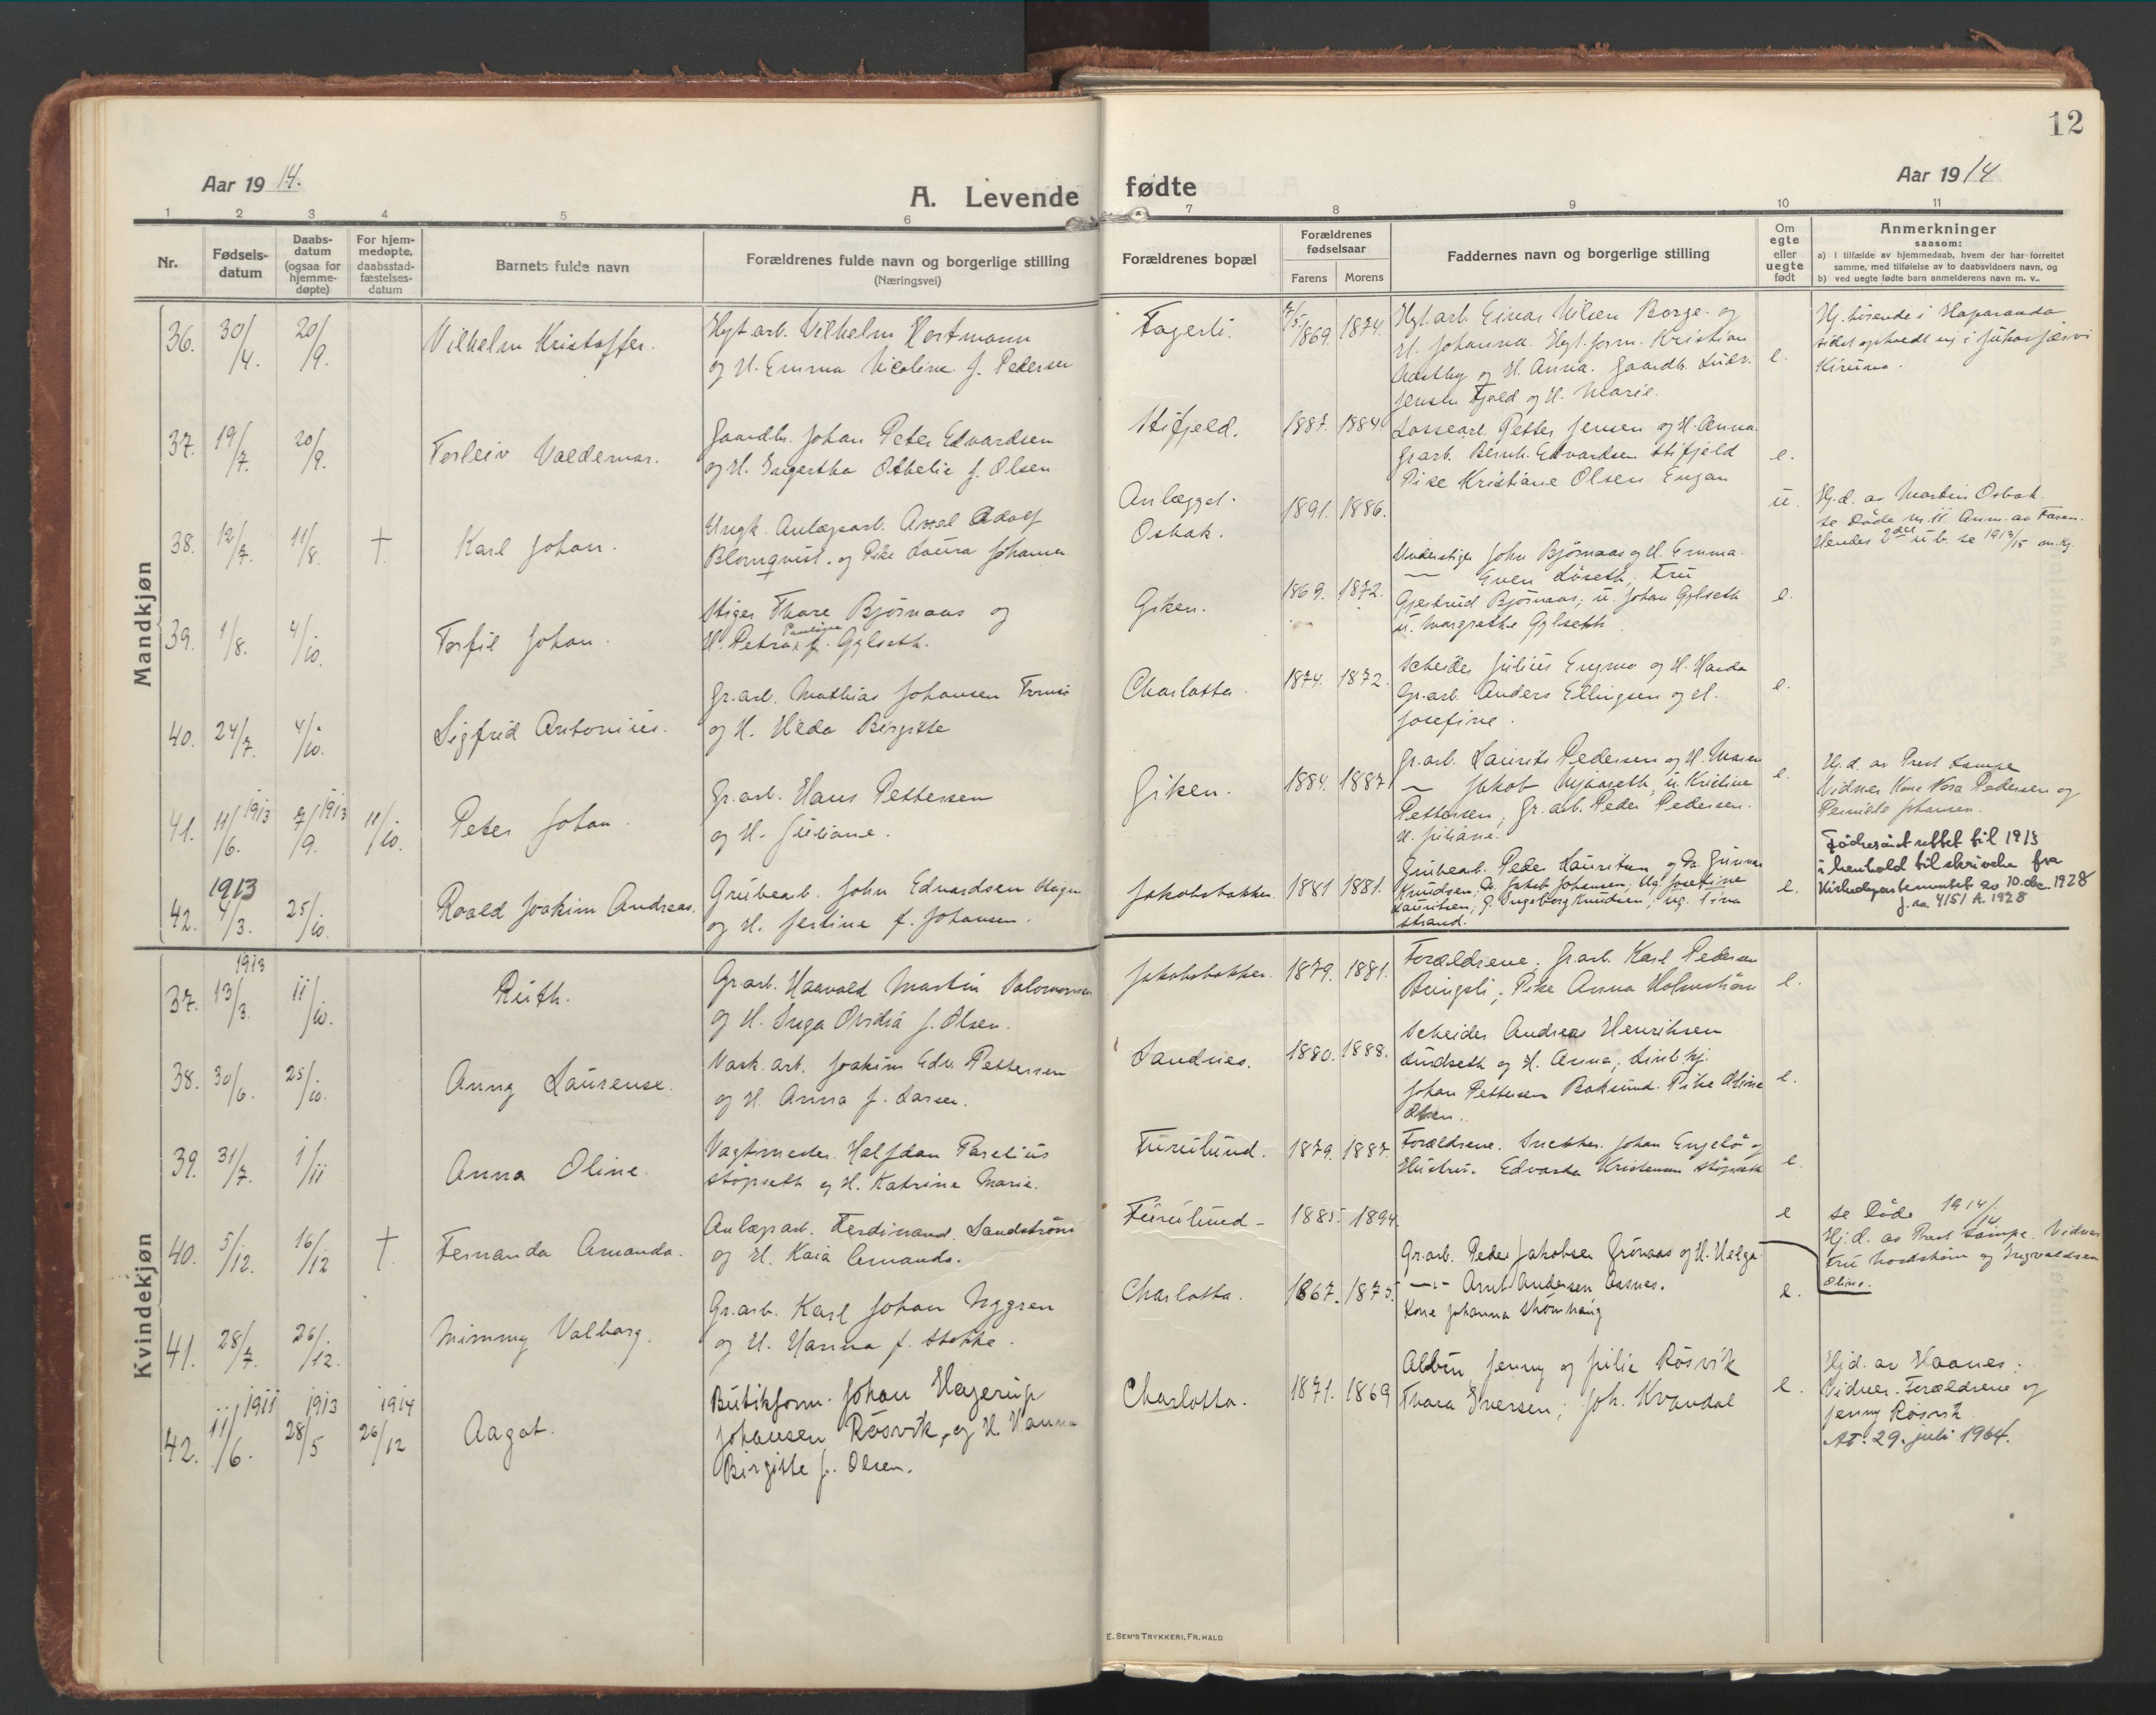 12
Aar 1914.
A. Levende
fødte
Aar 1914
1 2 3 4 5 6 7 8 9 10 11
Nr.
Fødsels-
datum
Daabs-
datum
(ogsaa for
hjemme-
døpte)
For hjem-
medøpte,
daabsstad-
fæstelses-
datum
Barnets fulde navn
Forældrenes fulde navn og borgerlige stilling
(Næringsvei)
Forældrenes bopæl
Forældrenes
fødselsaar
Farens Morens
Faddernes navn og borgerlige stilling
Om
egte
eller
uegte
født
Anmerkninger
saasom:
a) I tilfælde av hjemmedaab, hvem der har forrettet
samme, med tilføielse av to daabsvidners navn, og
b) ved uegte fødte barn anmelderens navn m. v..
Mandkjøn
36. 30/4. 20/9. Vilhelm Kristoffer.
Hyt. arb. Vilhelm Hortmann
og H. Emma Nicoline f. Pedersen
Fagerli. 7/5 1869. 1874.
Hyt. arb. Einar Nilsen Borge og
H. Johanna. Hyt. form. Kristian
og H. Anna. Gaardb. Ludv.
Jensen Fjeld og H. Marie.
e.
Hj. hørende i Haparanda
sidst opholdt sig i Jukasjærvi
Kiruna.
37. 19/7. 20/9. Torleiv Valdemar.
Gaardbr. Johan Peter Edvardsen
og H. Ingertha Othelie f. Olsen
Stifjeld. 1887. 1884.
Lossearb. Petter Jensen og H. Anna.
Grarb. Bernh. Edvardsen Stifjeld
Pike Kristiane Olsen Engan
e.
38. 12/7. 11/8. † Karl Johan.
Ungk. Anlægsarb. Axel Adolf
Blomqvist. og Pike Laura Johansen
Anlægget.
Osbak.
1891. 1886.
u.
Hj. d. av Martin Osbak.
se Døde nr. 11. Anm. av Faren.
Hendes 2det u. b. se 1913/15
39. 1/8. 4/10. Torfil Johan.
Stiger Thore Bjørnaas og
Pauline
H. Petra f. Gylseth.
Giken. 1869. 1872.
Understiger John Bjørnaas og H. Emma
— Even Løseth, Fru
Gjertrud Bjørnaas, u. Johan Gylseth
u. Margrethe Gylseth
e.
40. 24/7. 4/10. Sigfrid Antonius.
Gr. arb. Mathias Johansen
og H. Hilda Birgitte
Charlotta. 1874. 1872.
Scheider Julius Engmo og H. Harda
Gr. arb. Anders Ellingsen og H.
Josefine.
e.
41. 11/6. 1913 7/9. 1913 11/10. Peter Johan.
Gr. arb. Hans Pettersen
og H. Juliane.
Giken. 1884. 1887
Gr. arb. Laurits Pedersen og H. Maren
— Jakob, u. Kristine
Pettersen, Gr. arb. Peder Pedersen.
H. Juliane.
e.
Hj. d. av Prest Lampe
Vidner Kone Nora Pedersen og
Pernille Johansen.
42. 1913 4/3. 25/10. Roald Joakim Andreas.
Grubearb. John Edvardsen
og H. Jertine f. Johansen.
Jakobsbakken 1881 1881.
Grubearb. Peder Lauritsen, og Gr. Gunnar
Knudsen, Gr. Jakob Johansen, Ug. Josefine
Lauritsen, G. Ingeborg Knudsen, ug. Tina
Strand.
e.
Fødselsåret rettet til 1913
i henhold til skrivelse fra
Kirkedepartementet av 10. dec. 1928
j. nr. 4151 A. 1928
Kvindekjøn
37. 1913 13/3. 11/10. Ruth.
Gr. arb. Haavald Martin Salomonsen
og H. Inga Ovidia f. Olsen.
Jakobsbakken. 1879. 1881.
Forældrene. Grarb. Karl Pedersen
Pike Anna Holmstrøm
e.
38. 30/6. 25/10. Anny Laurense.
Vask. arb. Joakim Edv. Pettersen
og H. Anna f. Larsen.
Sandnes. 1880. 1888.
Scheider Andreas Henriksen
Lundseth og H. Anna,
Johan Pettersen Baksund. Pike Oline
Olsen.
e.
39. 31/7. 1/11 Anna Oline.
Vagtmester. Halfdan Parelius
Støpseth og H. Katrine Marie.
Furulund. 1879. 1887.
Forældrene. Snekker. Johan Engelø og
Hustru. Edvarda Kristensen Støpseth
e.
40. 5/12. 16/12 † Fernanda Amanda.
Anlægsarb. Ferdinand Sandstrøm
og H. Kaia Amanda.
Furulund – 1885 1894
e
se Døde 1914/14.
Hj. d. av Prest Lampe. Vidner
Fru Nordstrøm og Ingvaldsen
Oline.
41. 28/7. 26/12. Mimmy Valborg.
Gr. arb. Karl Johan Nygren
og H. Hanna f. Stokke.
Charlotta. 1867. 1875.
Gr. arb. Peder Jakobsen Grønaas og H. Helga
—"— Arnt Andersen Aasnes.
Kone Johanna Skonhaug
e.
42. 11/6. 1911 28/5 1913 26/12 1914 Aagot.
Butikform. Johan Hagerup
Johansen Røsvik, og H. Hanna
Birgitte f. Olsen.
Charlotta. 1871. 1869
Albin, Jenny og Julie Røsvik
Thora Iversen; Joh. Kvandal
e.
Hjd. av Haanes.
Vidner. Forældrene og
Jenny Røsvik
At. 29. juli 1964.
E. SEM'S TRYKKERI, FR.HALD